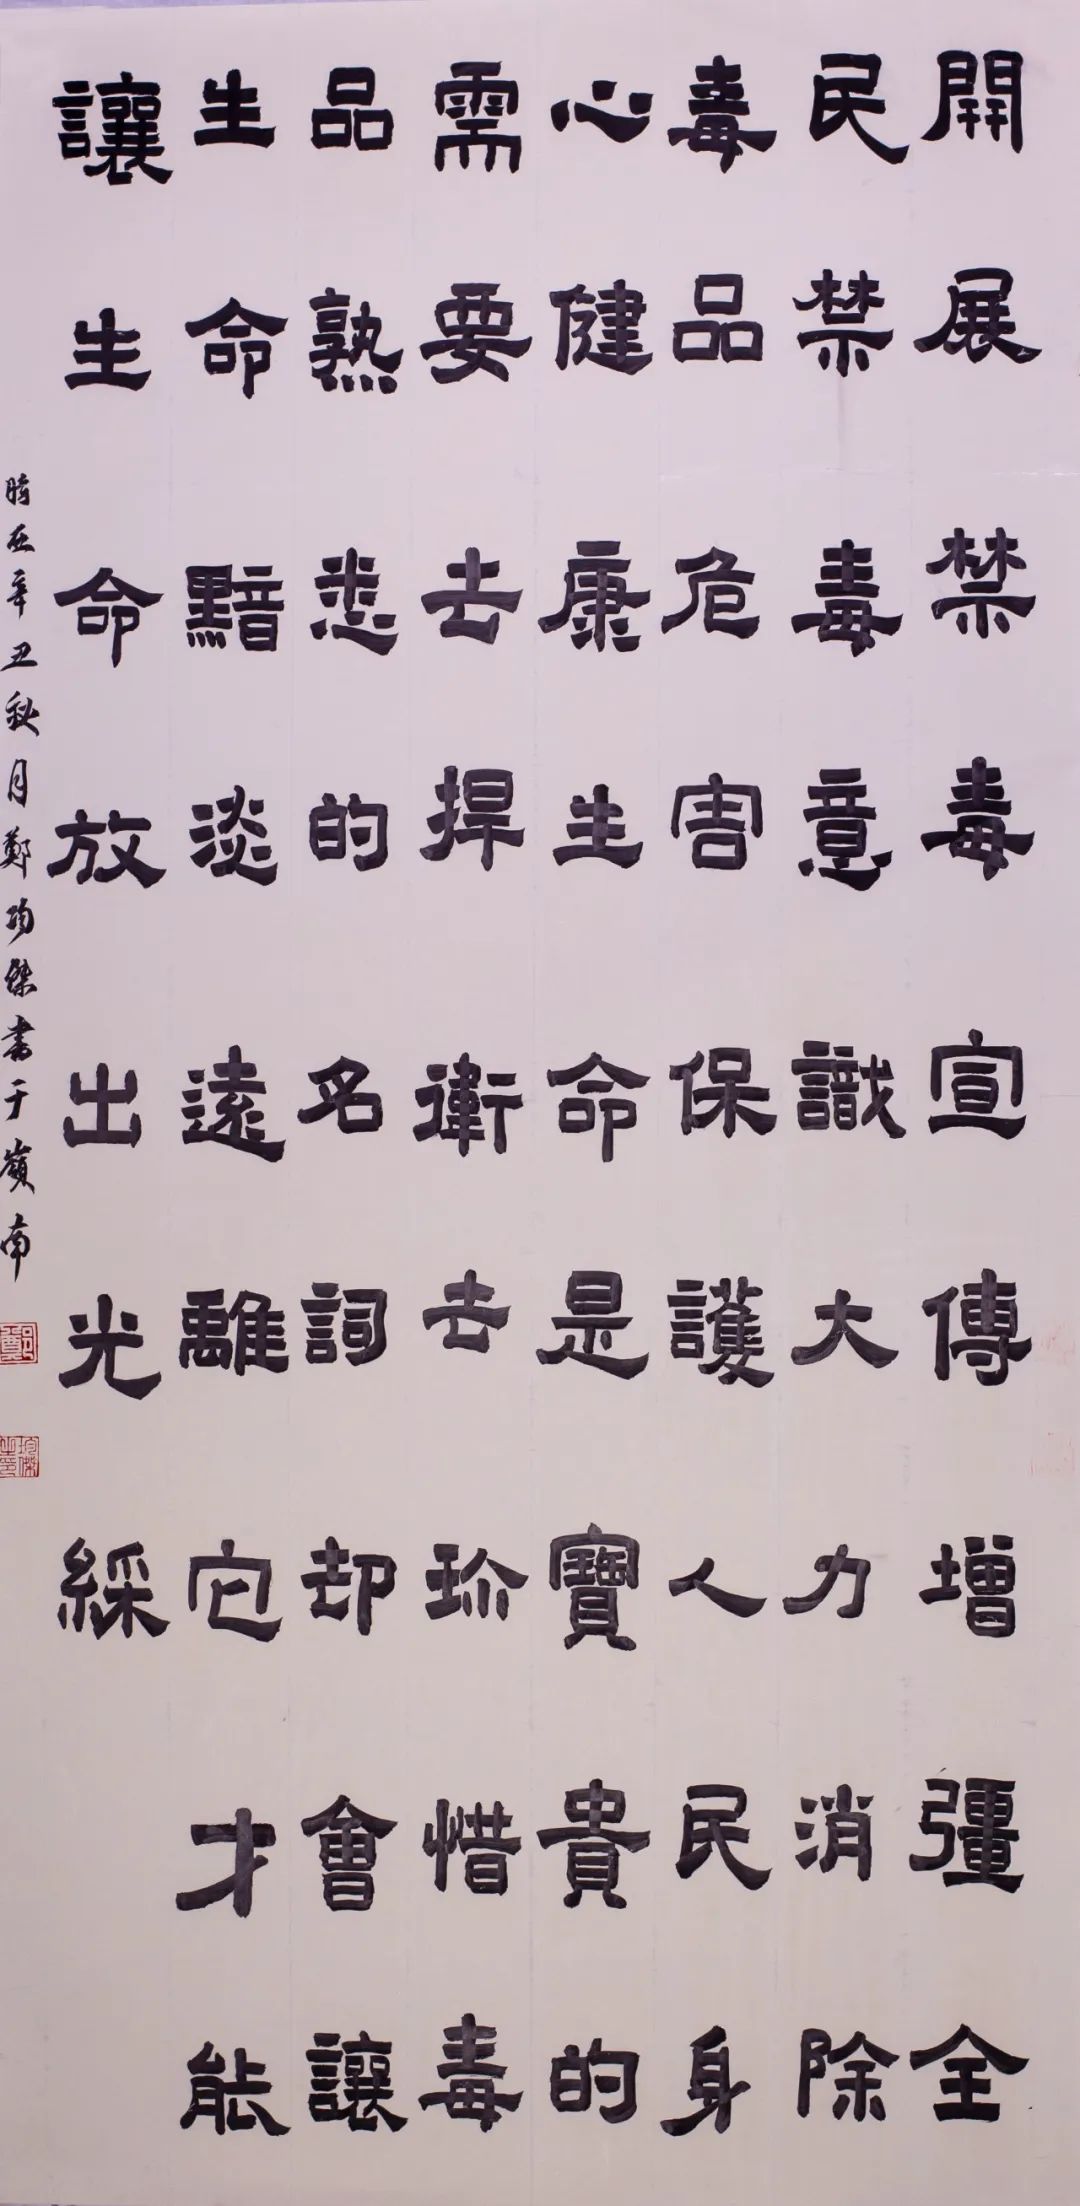 開展禁毒宣傳增彊全
民禁毒意識大力消除
毒品危害保護人民身
心健康生命是寶貴的
需要去捍衛去珍惜毒
品熟悉的名詞却會讓
生命黯淡遠離它才能
讓生命放出光綵
時在辛丑秋月鄭珣傑書于嶺南
鄭